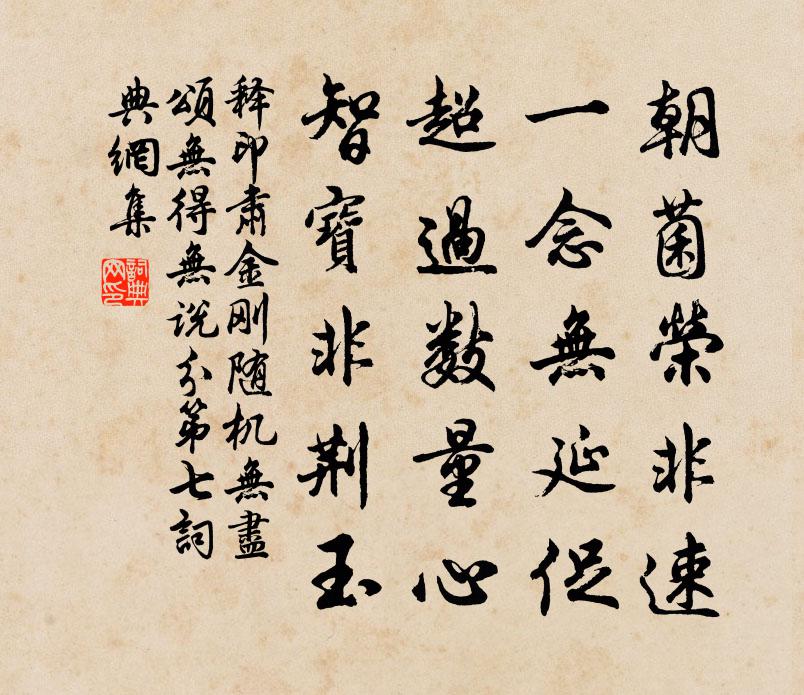 朝菌榮非速
一念無延促
超過数量心
智寶非荆玉
释印肃金刚随机無盡
頌無得無说分第七詞
典網集
詞典网印